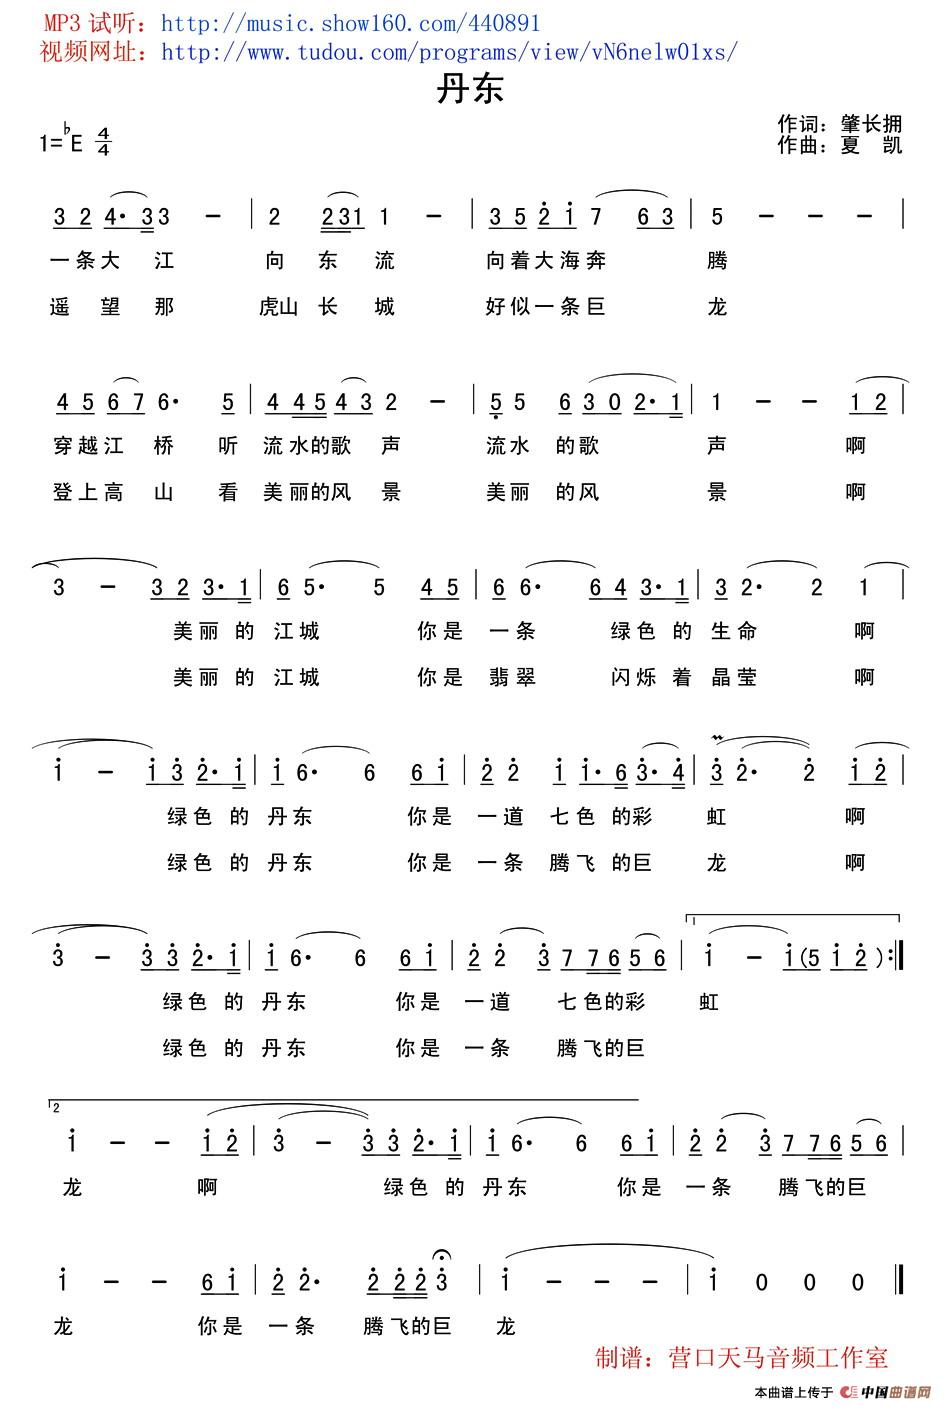 MP3 试听：http://music.show160.com/440891
视频网址：http://www.tudou.com/programs/view/vN6nelw01xs/
丹东
1=♭E 4/4
作词：肇长拥
作曲：夏 凯
3 2 4· 3 3 － | 2 2 3 1 1 － | 3 5 2̇ 1̇ 7 6 3 | 5 － － － |
一条大 江 向 东 流 向着大海奔 腾
遥 望 那 虎山 长 城 好似一条巨 龙
4 5 6 7 6· 5 | 4 4 5 4 3 2 － | 5̣ 5 6 3 0 2· 1 | 1 － － 1 2 |
穿越江 桥 听 流水的歌 声 流水 的歌 声 啊
登上高 山 看 美丽的风 景 美丽 的风 景 啊
3 － 3 2 3· 1 | 6 5· 5 4 5 | 6 6· 6 4 3· 1 | 3 2· 2 1 |
美丽 的 江城 你是 一条 绿色 的 生命 啊
美丽 的 江城 你是 翡翠 闪烁 着 晶莹 啊
1̇ － 1̇ 3̇ 2̇· 1̇ | 1̇ 6· 6 6 1̇ | 2̇ 2̇ 1̇ 1̇· 6 3̇· 4̇ | 3̇ 2̇· 2̇ 1̇ 2̇ |
绿色 的 丹东 你是 一道 七色 的彩 虹 啊
绿色 的 丹东 你是 一条 腾飞 的巨 龙 啊
3̇ － 3̇ 3̇ 2̇· 1̇ | 1̇ 6· 6 6 1̇ | 2̇ 2̇ 3̇ 7 7 6 5 6 | 1 1̇ － 1̇ (5 1̇ 2̇ ) :|
绿色 的 丹东 你是 一道 七色的彩 虹
绿色 的 丹东 你是 一条 腾飞的巨
2
1̇ － － 1̇ 2̇ | 3̇ － 3̇ 3̇ 2̇· 1̇ | 1̇ 6· 6 6 1̇ | 2̇ 2̇ 3̇ 7 7 6 5 6 |
龙 啊 绿色 的 丹东 你是 一条 腾飞的巨
1̇ － － 6 1̇ | 2̇ 2̇· 2̇ 2̇ 2̇ 3̇ | 1̇ － － － | 1̇ 0 0 0 ‖
龙 你是 一条 腾飞的巨 龙
制谱：营口天马音频工作室
本曲谱上传于 中国曲谱网